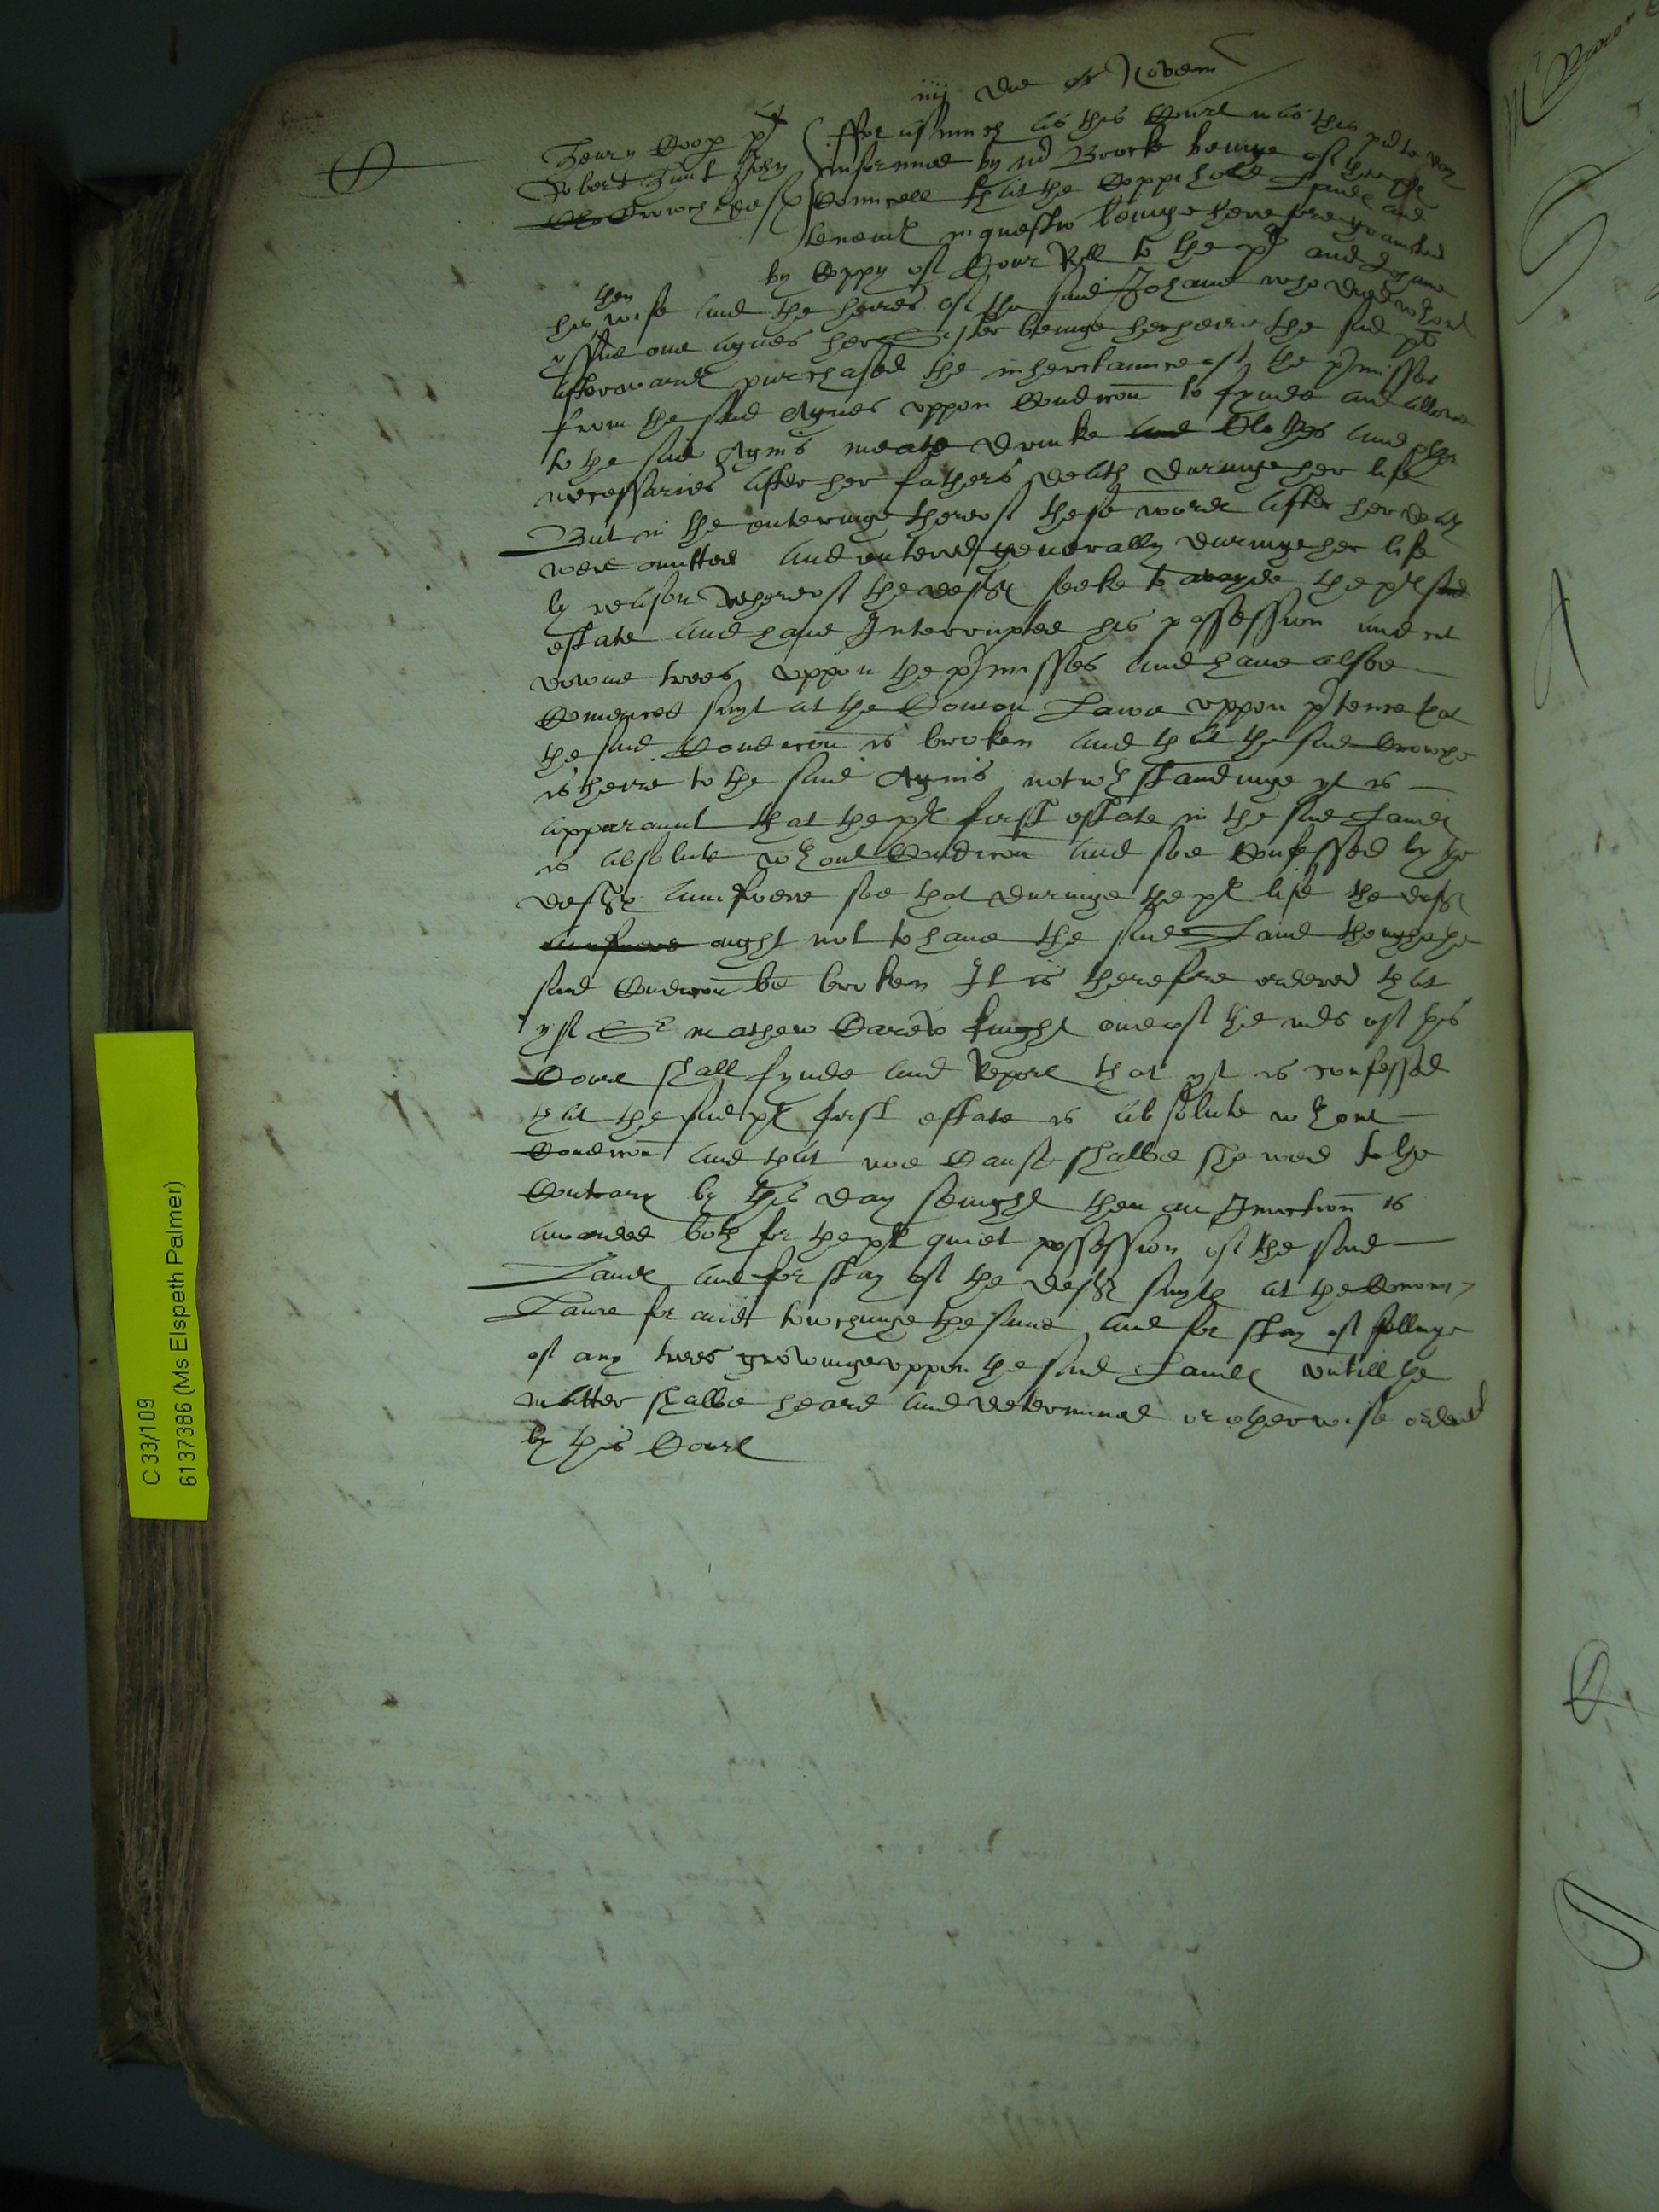 iiij die of Novem
Henry Coop pl fforasmuch as this Court was this pnte daye
Robert Hunt John informed by mr Brocke beinge of the pls
Crowch defts Councell that the Coppiholde Landes and
tenemts in questio beinge heretofore graunted
by Coppy of Court Roll to the pl and Johane
then
his wife and the heires of the said Johane who dyed wthout
yssue one Agnes her Sister beinge her heire the said pl
afterwardes purchased the inheritaunce of the pmisses
from the said Agnes uppon Condicon to fynde and allowe
to the said Agnis meate drinke and Clothes and other
necessaries after her fathers death duringe her life
But in the enteringe thereof these wordes after her death
were omitted and entered generally duringe her life
by reason whereof the defts seeke to avoyde the pls said
estate and have Interrupted his possession and cut
downe trees uppon the pmisses and have alsoe
Comenced suyt at the Comon Lawe uppon ptence that
the said Condicon is broken and that the said Crowche
is heire to the said Agnis notwthstandinge yt is
apparaunt that the pls first estate in the said Landes
is absolute wthout Condicon and soe Confessed by the
defts aunswere soe that duringe the pls life the defts
aunswere ought not to have the said Land thoughe the
said Condicon be broken It is therefore ordered that
yf Sr Mathew Carew knight one of the mrs of this
Court shall fynde and Report that yt is confessed
that the said pls first estate is absolute wthout
Condicon and that noe Cause shalbe shewed to the
Contrary by this day sevnight then an Iniunction is
awarded both for the pls quiet possession of the said
Landes and for stay of the defts suyts at the Comon
Lawe for and towchinge the same and for stay of fellinge
of any trees growinge uppon the said Landes untill the
matter shalbe heard and determined or otherwise ordered
by this Court
C 33/109
6137386 (Ms Elspeth Palmer)